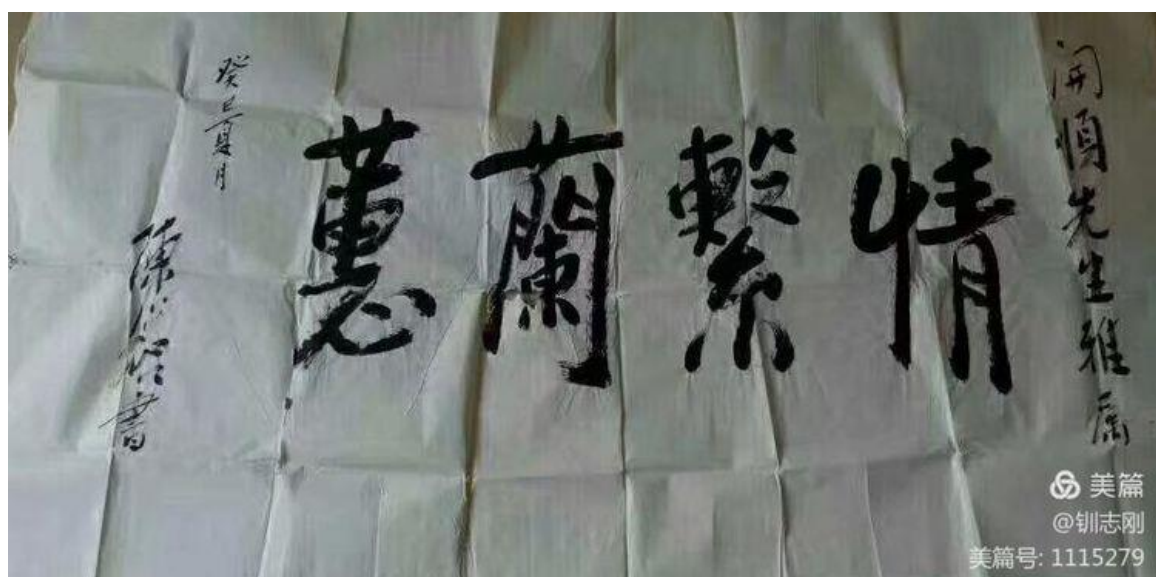 開順先生雅屬
情繫蘭蕙
癸巳夏月
陳書
美篇
@钏志刚
美篇号: 1115279